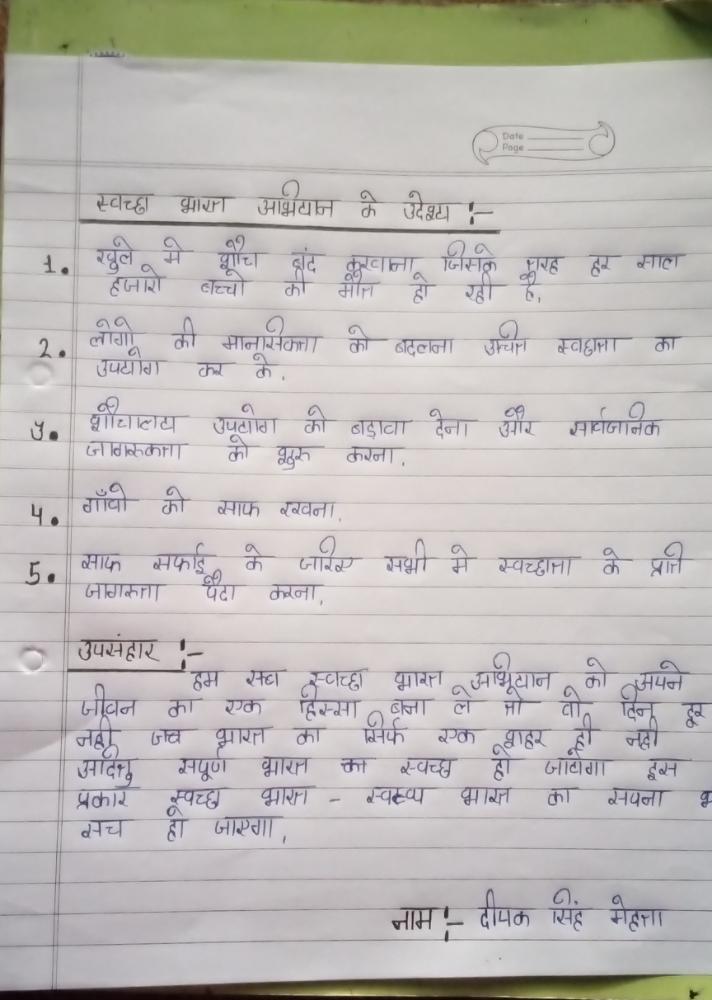 Date
Page
स्वच्छा भारत अभियान के उदेश्य :-
1. खुले मे शौच बंद करवाना जिसके तरह हर साल
हजारो बच्चो की मौत हो रही है,
2. लोगो की मानसिकता को बदलना उचित स्वछता का
उपयोग कर के,
3. शौचालय उपयोग को बड़ावा देना और सार्वजानिक
जागरुकता को शुरु करना,
4. गाँवो को साफ रखना,
5. साफ सफाई के जरिए सभी मे स्वच्छाता के प्रति
जागरुता पैदा करना,
उपसंहार :-
हम सच स्वच्छा भारत अभियान को अपने
जीवन का एक हिस्सा बना ले तो वो दिन दूर
नही जब भारत का सिर्फ एक शहर ही नही
संपूर्ण भारत का स्वच्छ हो जायेगा इस
प्रकार स्वच्छ भारत - भारत का सपना
सच हो जाएगा,
नाम :- दीपक सिंह मेहता